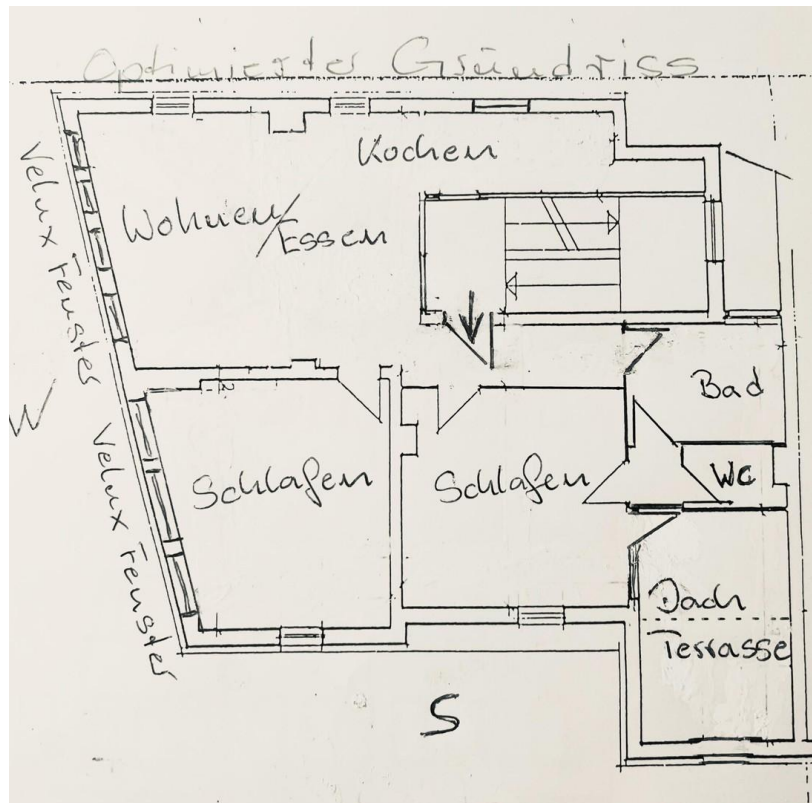 Optimierter Grundriss
Kochen
Wohnen/
Essen
Velux Fenster
W
Bad
Velux Fenster
Schlafen
Schlafen
WC
Dach
Terrasse
S